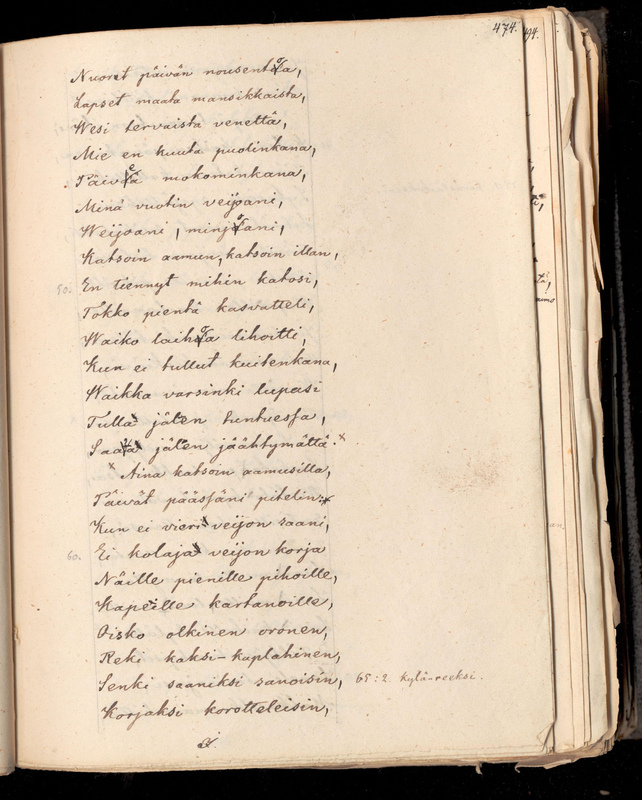 474.
Nuoret päivän nousentoa,
Lapset maata mansikkaista,
Wesi tervaista venettä,
Mie en kuuta puolinkana,
Päiveä mokominkana,
Minä vuotin veijoani,
Weijoani, minjoani,
Katsoin aamun, katsoin illan,
50. En tiennyt mihin katosi,
Tokko pientä kasvatteli,
Waiko laihoa lihoitti,
Kun ei tullut kuitenkana,
Waikka varsinki lupasi
Tulla jälen tuntuessa,
Saaha jälen jäähtymättä.
Aina katsoin aamusilla,
Päivät päässäni pitelin:
Kun ei vieri veijon saani,
60. Ei kolaja veijon korja
Näille pienille pihoille,
Kapeille kartanoille,
Oisko olkinen oronen,
Reki kaksi-kaplahinen,
Senki saaniksi sanoisin, 65:2 kylä-reeksi.
Korjaksi korotteleisin,